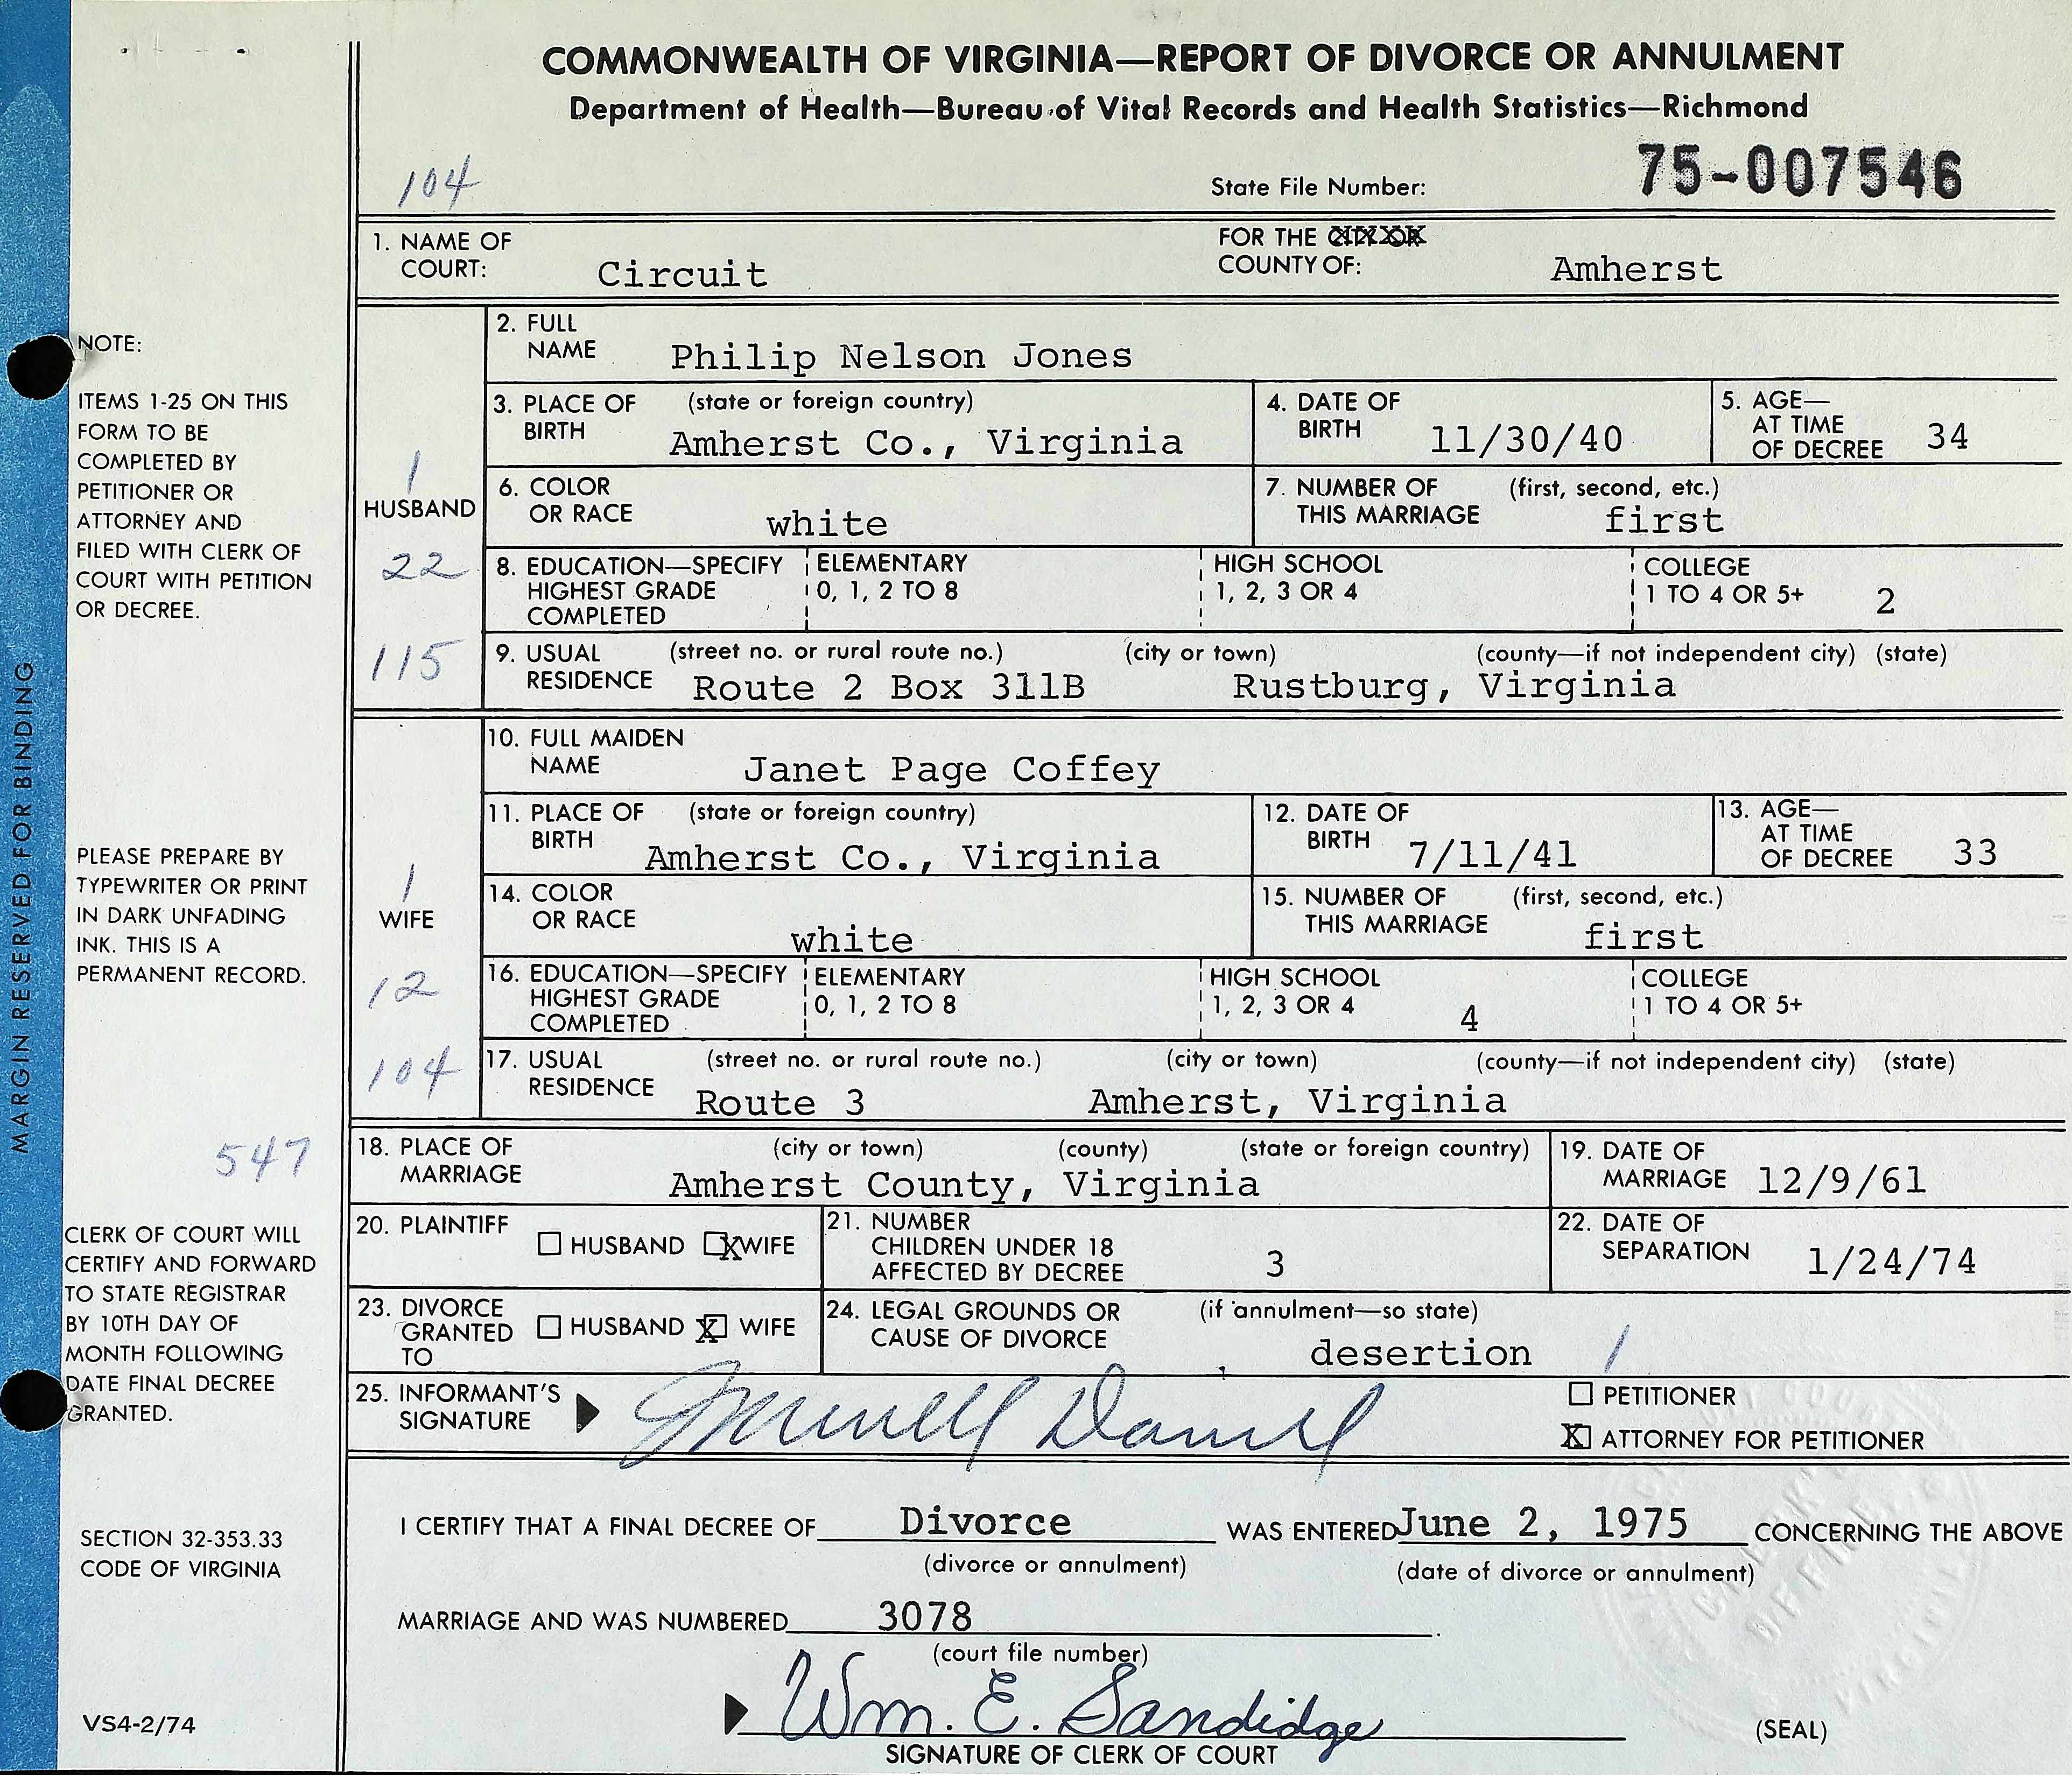 COMMONWEALTH OF VIRGINIA—REPORT OF DIVORCE OR ANNULMENT
Department of Health—Bureau of Vital Records and Health Statistics—Richmond
104
State File Number: 75-007546
1. NAME OF COURT: Circuit
FOR THE CITY OR COUNTY OF: Amherst
HUSBAND
1
22
115
2. FULL NAME Philip Nelson Jones
3. PLACE OF BIRTH (state or foreign country) Amherst Co., Virginia
4. DATE OF BIRTH 11/30/40
5. AGE— AT TIME OF DECREE 34
6. COLOR OR RACE white
7. NUMBER OF THIS MARRIAGE (first, second, etc.) first
8. EDUCATION—SPECIFY HIGHEST GRADE COMPLETED
ELEMENTARY 0, 1, 2 TO 8
HIGH SCHOOL 1, 2, 3 OR 4
COLLEGE 1 TO 4 OR 5+ 2
9. USUAL RESIDENCE (street no. or rural route no.) (city or town) (county—if not independent city) (state)
Route 2 Box 311B Rustburg, Virginia
WIFE
1
12
104
10. FULL MAIDEN NAME Janet Page Coffey
11. PLACE OF BIRTH (state or foreign country) Amherst Co., Virginia
12. DATE OF BIRTH 7/11/41
13. AGE— AT TIME OF DECREE 33
14. COLOR OR RACE white
15. NUMBER OF THIS MARRIAGE (first, second, etc.) first
16. EDUCATION—SPECIFY HIGHEST GRADE COMPLETED
ELEMENTARY 0, 1, 2 TO 8
HIGH SCHOOL 1, 2, 3 OR 4 4
COLLEGE 1 TO 4 OR 5+
17. USUAL RESIDENCE (street no. or rural route no.) (city or town) (county—if not independent city) (state)
Route 3 Amherst, Virginia
18. PLACE OF MARRIAGE (city or town) (county) (state or foreign country)
Amherst County, Virginia
19. DATE OF MARRIAGE 12/9/61
20. PLAINTIFF HUSBAND X WIFE
21. NUMBER CHILDREN UNDER 18 AFFECTED BY DECREE 3
22. DATE OF SEPARATION 1/24/74
23. DIVORCE GRANTED TO HUSBAND X WIFE
24. LEGAL GROUNDS OR CAUSE OF DIVORCE (if annulment—so state) desertion 1
25. INFORMANT'S SIGNATURE Daniel
PETITIONER
X ATTORNEY FOR PETITIONER
I CERTIFY THAT A FINAL DECREE OF Divorce WAS ENTERED June 2, 1975 CONCERNING THE ABOVE
(divorce or annulment) (date of divorce or annulment)
MARRIAGE AND WAS NUMBERED 3078.
(court file number)
Wm. E. Sandidge
SIGNATURE OF CLERK OF COURT
(SEAL)
CLERK'S OFFICE
VIRGINIA
MARGIN RESERVED FOR BINDING
NOTE:
ITEMS 1-25 ON THIS
FORM TO BE
COMPLETED BY
PETITIONER OR
ATTORNEY AND
FILED WITH CLERK OF
COURT WITH PETITION
OR DECREE.
PLEASE PREPARE BY
TYPEWRITER OR PRINT
IN DARK UNFADING
INK. THIS IS A
PERMANENT RECORD.
547
CLERK OF COURT WILL
CERTIFY AND FORWARD
TO STATE REGISTRAR
BY 10TH DAY OF
MONTH FOLLOWING
DATE FINAL DECREE
GRANTED.
SECTION 32-353.33
CODE OF VIRGINIA
VS4-2/74